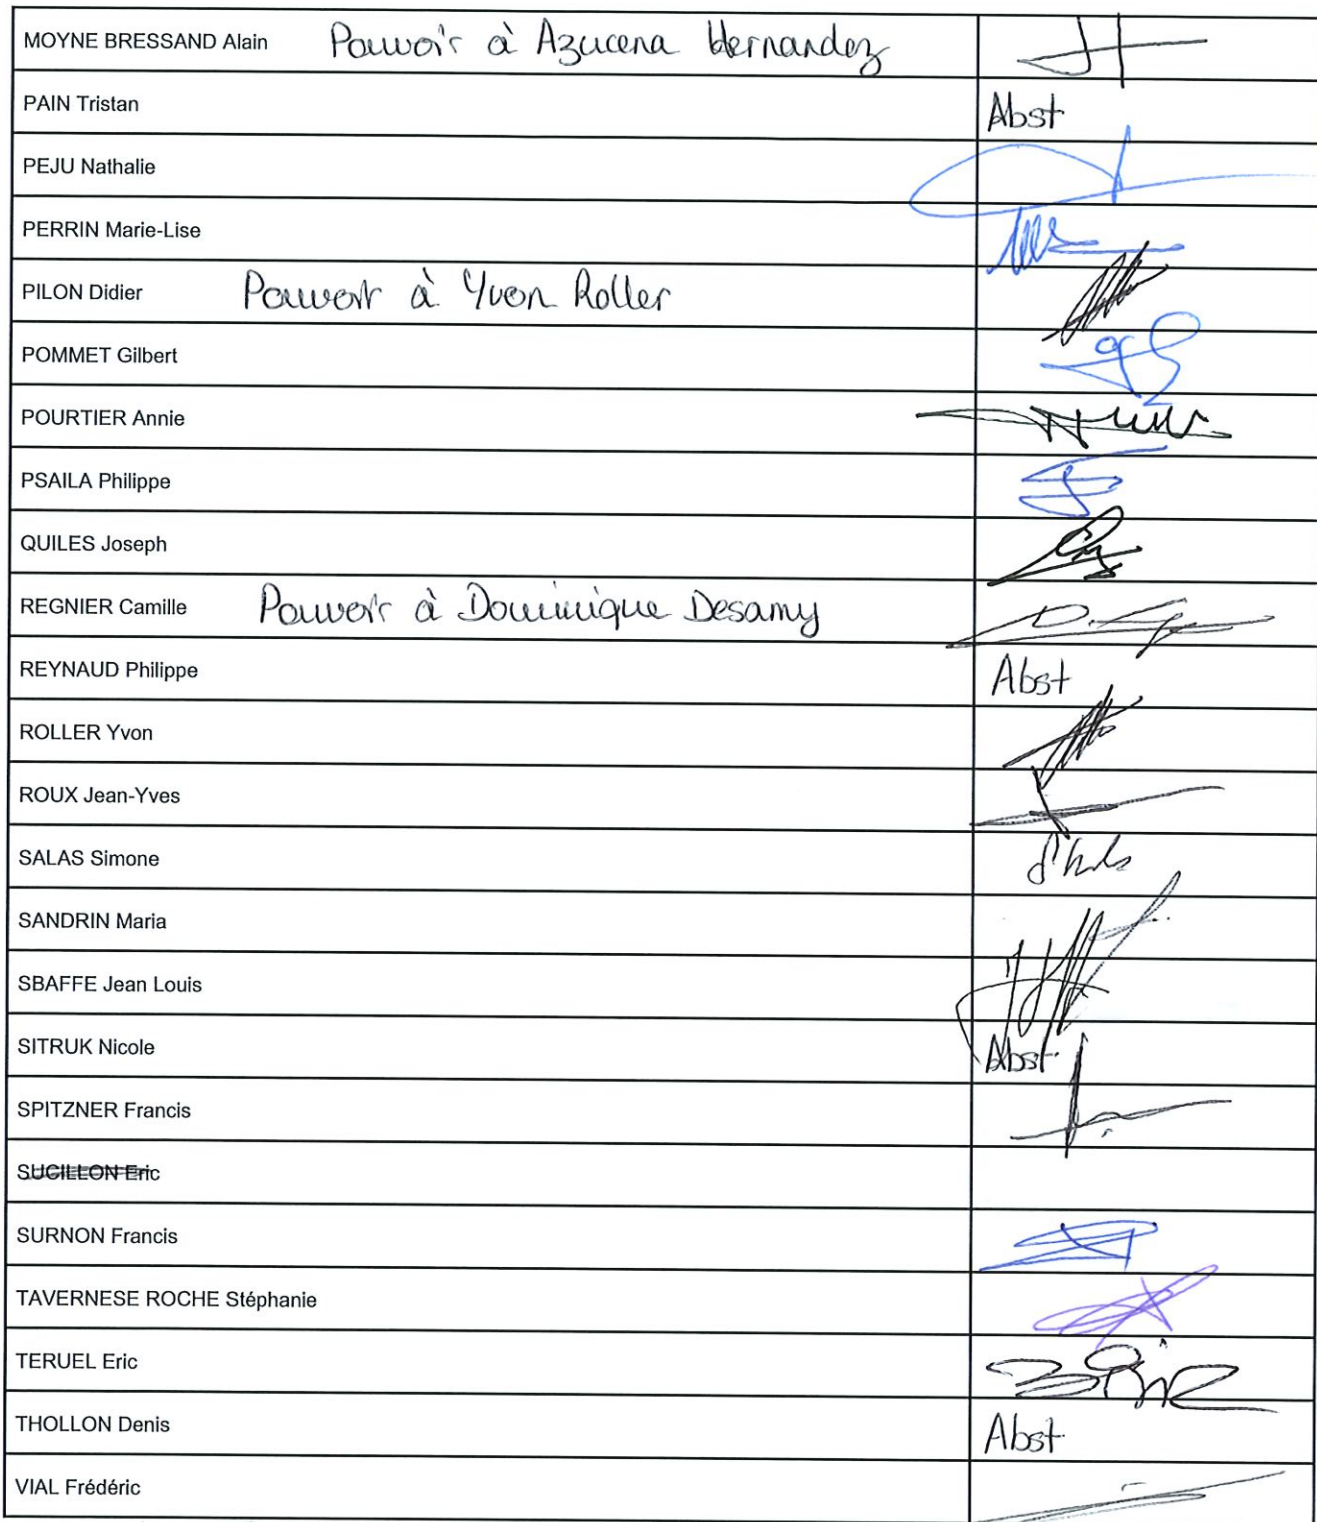 MOYNE BRESSAND Alain Pouvoir à Azucena Hernandez
PAIN Tristan Abst
PEJU Nathalie
PERRIN Marie-Lise
PILON Didier Pouvoir à Yvon Roller
POMMET Gilbert
POURTIER Annie
PSAILA Philippe
QUILES Joseph
REGNIER Camille Pouvoir à Dominique Desamy
REYNAUD Philippe Abst
ROLLER Yvon
ROUX Jean-Yves
SALAS Simone
SANDRIN Maria
SBAFFE Jean Louis
SITRUK Nicole Abst
SPITZNER Francis
SUCILLON Eric
SURNON Francis
TAVERNESE ROCHE Stéphanie
TERUEL Eric
THOLLON Denis Abst
VIAL Frédéric